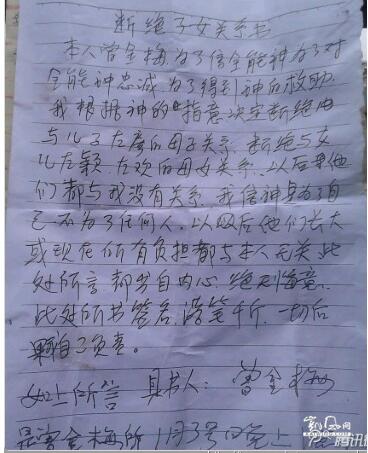 断绝子女关系书
本人曾金梅为了信全能神为了对
全能神忠诚为了得到神的救助
我根据神的指意决定断绝由
与儿子左彦的母子关系 断绝与女
儿左颖.左欢的母女关系.以后其他
们都与我没有关系.我信神是为了自
己不为了任何人.以后他们长大
或现在所有负担都与本人无关.此
处所言都出自内心.绝无悔意.
此处所书签名.落笔千斤.一切后
果自己负责.
如上所言 具书人: 曾金梅
是曾金梅所 11月3号四晚上
凯风网
腾讯